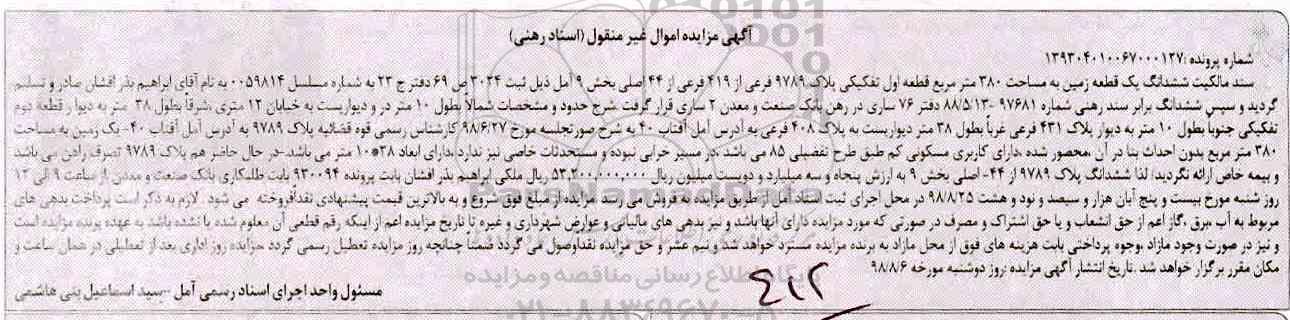 آگهی مزایده اموال غیر منقول (اسناد رهنی)
شماره پرونده :۱۳۹۳۰۴۰۱۰۰۶۷۰۰۰۱۲۷
سند مالکیت ششدانگ یک قطعه زمین به مساحت ۳۸۰ متر مربع قطعه اول تفکیکی پلاک ۹۷۸۹ فرعی از ۴۱۹ فرعی از ۴۴ اصلی بخش ۹ آمل ذیل ثبت ۳۰۲۴ ص ۶۹ دفتر ج ۲۳ به شماره مسلسل ۰۰۵۹۸۱۴ به نام آقای ابراهیم بذر افشان صادر و تسلیم
گردید و سپس ششدانگ برابر سند رهنی شماره ۹۷۶۸۱ -۸۸/۵/۱۳ دفتر ۷۶ ساری در رهن بانک صنعت و معدن ۲ ساری قرار گرفت .شرح حدود و مشخصات شمالاً بطول ۱۰ متر در و دیواریست به خیابان ۱۲ متری ،شرقاً بطول ۳۸ متر به دیوار قطعه دوم
تفکیکی جنوباً بطول ۱۰ متر به دیوار پلاک ۴۳۱ فرعی غرباً بطول ۳۸ متر دیواریست به پلاک ۴۰۸ فرعی به آدرس آمل آفتاب ۴۰ به شرح صورتجلسه مورخ ۹۸/۶/۲۷ کارشناس رسمی قوه قضائیه پلاک ۹۷۸۹ به آدرس آمل آفتاب ۴۰- یک زمین به مساحت
۳۸۰ متر مربع بدون احداث بنا در آن ،محصور شده ،دارای کاربری مسکونی کم طبق طرح تفصیلی ۸۵ می باشد ،در مسیر خرابی نبوده و مستحدثات خاصی نیز ندارد ،دارای ابعاد ۳۸*۱۰ متر می باشد.-در حال حاضر هم پلاک ۹۷۸۹ تصرف راهن می باشد
و بیمه خاص ارائه نگردید؛ لذا ششدانگ پلاک ۹۷۸۹ از ۴۴- اصلی بخش ۹ به ارزش پنجاه و سه میلیارد و دویست میلیون ریال ۵۳,۲۰۰,۰۰۰,۰۰۰ ریال ملکی ابراهیم بذر افشان بابت پرونده ۹۳۰۰۹۴ بابت طلبکاری بانک صنعت و معدن از ساعت ۹ الی ۱۲
روز شنبه مورخ بیست و پنج آبان هزار و سیصد و نود و هشت ۹۸/۸/۲۵ در محل اجرای ثبت اسناد آمل از طریق مزایده به فروش می رسد .مزایده از مبلغ فوق شروع و به بالاترین قیمت پیشنهادی نقداً فروخته می شود . لازم به ذکر است پرداخت بدهی های
مربوط به آب ،برق ،گاز اعم از حق انشعاب و یا حق اشتراک و مصرف در صورتی که مورد مزایده دارای آنها باشد و نیز بدهی های مالیاتی و عوارض شهرداری و غیره تا تاریخ مزایده اعم از اینکه رقم قطعی آن معلوم شده یا نشده باشد به عهده برنده مزایده است
و نیز در صورت وجود مازاد ،وجوه پرداختی بابت هزینه های فوق از محل مازاد به برنده مزایده مسترد خواهد شد و نیم عشر و حق مزایده نقداً وصول می گردد ضمناً چنانچه روز مزایده تعطیل رسمی گردد ،مزایده روز اداری بعد از تعطیلی در همان ساعت و
مکان مقرر برگزار خواهد شد .تاریخ انتشار آگهی مزایده :روز دوشنبه مورخه ۹۸/۸/۶
مسئول واحد اجرای اسناد رسمی آمل –سید اسماعیل بنی هاشمی